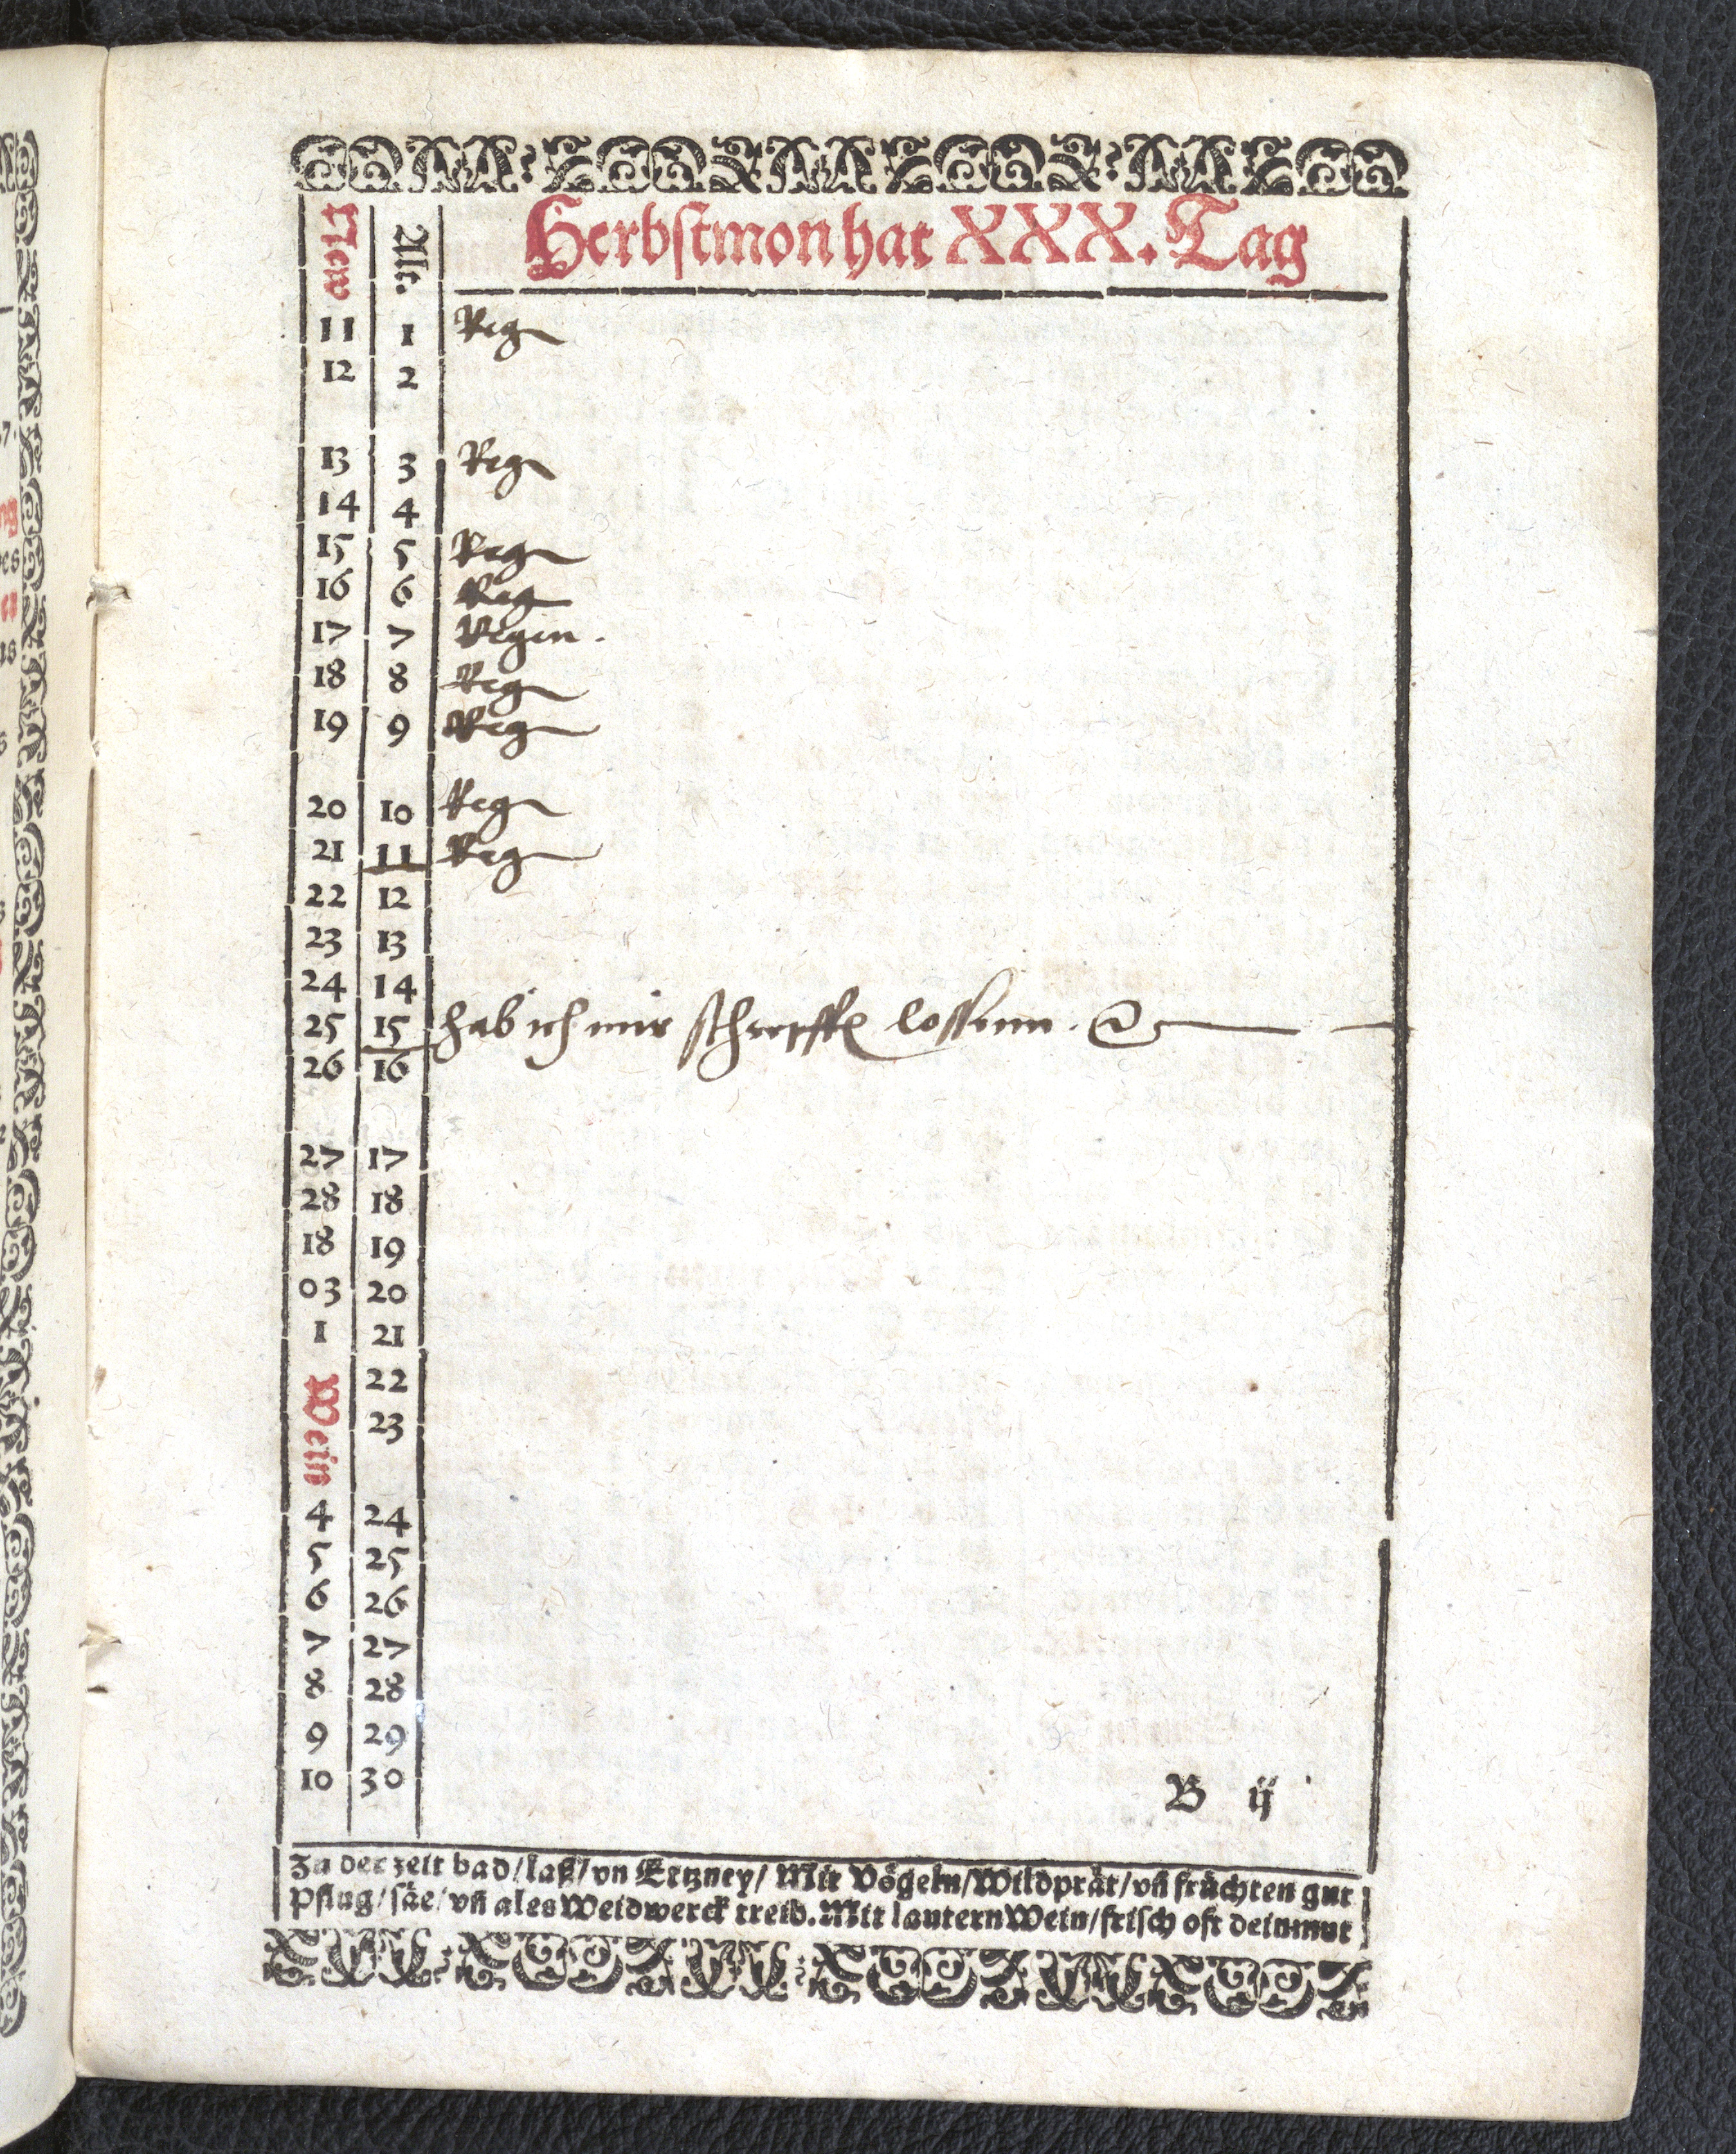 Herbstmon hat XXX. Tag
New Alt.
11 1 Reg
12 2
13 3 Reg
14 4
15 5 Reg
16 6 Reg
17 7 Regen.
18 8 Reg
19 9 Reg
20 10 Reg
21 11 Reg
22 12
23 13
24 14
25 15 hab ich mir schrepffe lossenn.
26 16
27 17
28 18
18 19
03 20
1 21
Wein 22
23
4 24
5 25
6 26
7 27
8 28
9 29
10 30
B ij
Zu der zeit bad/laß/vn Ertzney/ Mit Vögeln/Wildprät/vñ früchten gut
Pflug/säe/vñ ales Weidwerck treib. Mit lautern Wein/frisch oft dein mut